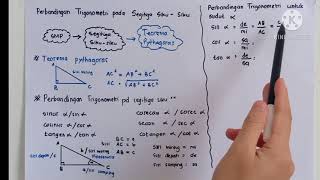 Perbandingan Trigonometri pada Segitiga Siku - Siku
SMP
Segitiga
Siku - Siku
Teorema
Pythagoras
* Teorema Pythagoras
A
B
C
sisi miring
AC² = AB² + BC²
AC = √AB² + BC²
** Perbandingan Trigonometri pd segitiga siku²
sinus / sin α
cosinus / cos α
tangen / tan α
cosecan α / cosec α
secan α / sec α
cotangen α / cot α
A
B
C
α
b / sisi miring
a / sisi samping
BC = a
AC = b
AB = c
sisi miring : mi
sisi depan : de
sisi samping : sa
Perbandingan Trigonometri untuk
sudut α
sin α = de/mi = AB/AC = c
cos α = sa/mi =
tan α = de/sa =